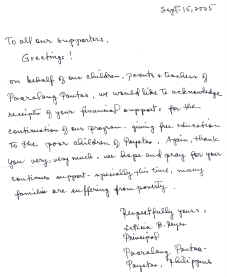 Sept. 15, 2025
To all our supporters,
Greetings!
On behalf of our children, parents & teachers of
Paaralang Pantao, we would like to acknowledge
receipts of your financial support, for the
continuation of our program - giving free education
to the poor children of Payatas. Again, thank
you very, very much, we hope and pray for your
continues support - specially this time, many
families are suffering from poverty.
Respectfully yours,
Leticia B. Reyes
Principal
Paaralang Pantao-
Payatas, Philippines